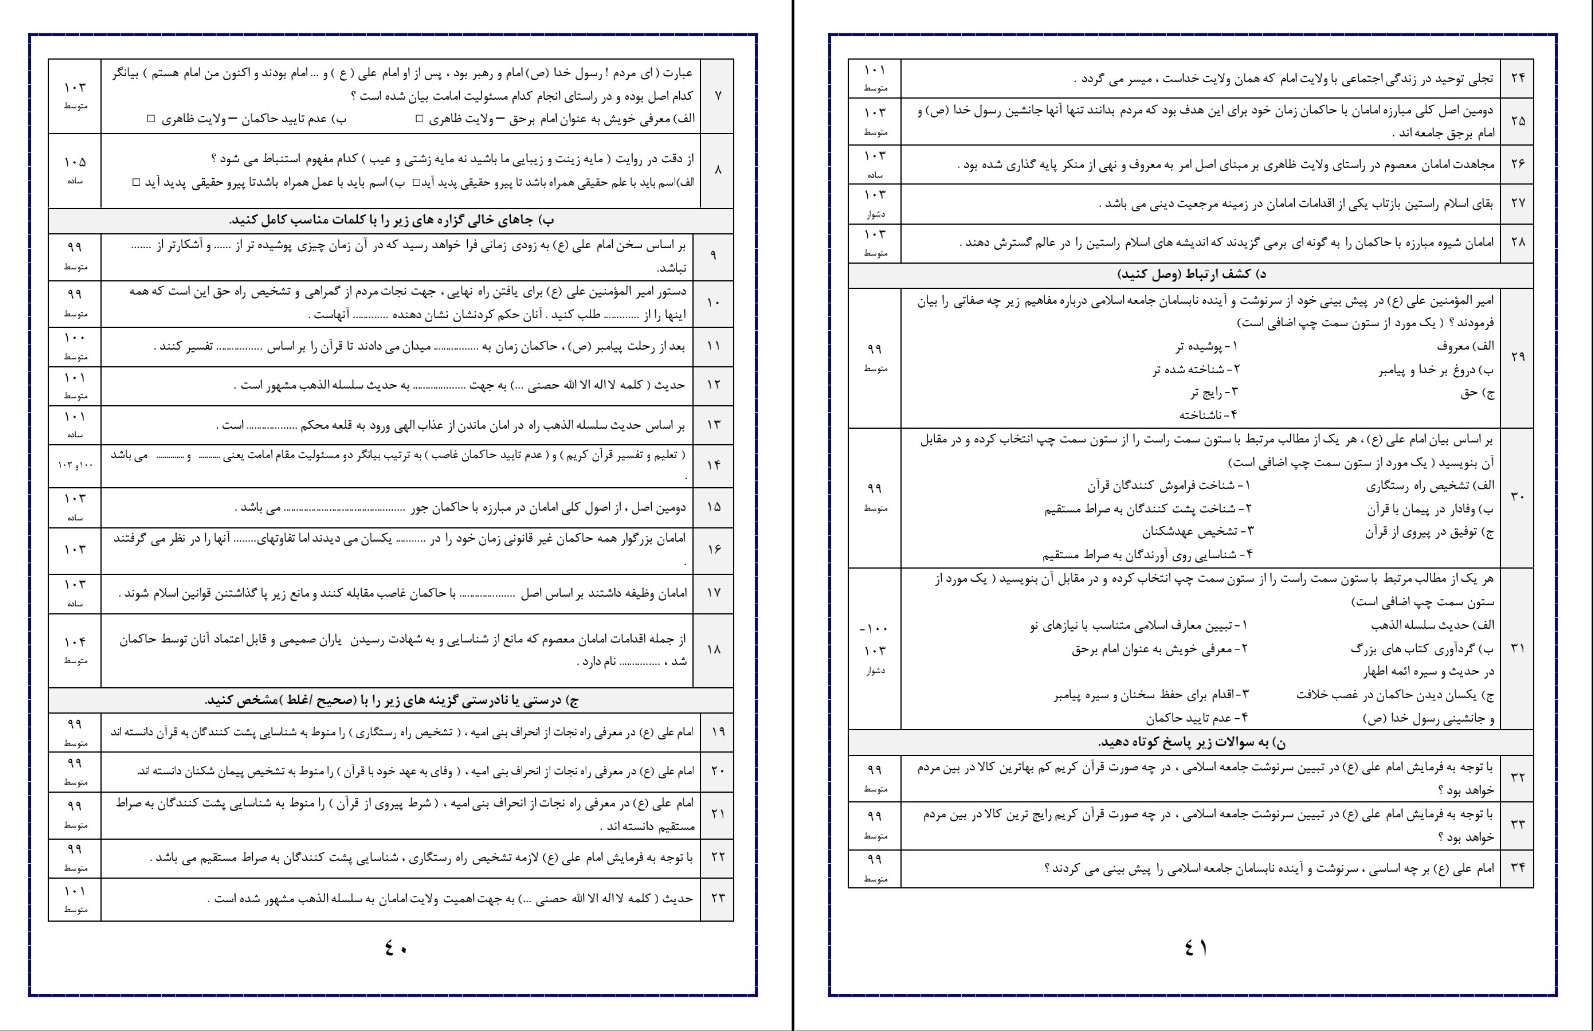 ۷
عبارت ( ای مردم ! رسول خدا (ص) امام و رهبر بود ، پس از او امام علی ( ع ) و ... امام بودند و اکنون من امام هستم ) بیانگر
کدام اصل بوده و در راستای انجام کدام مسئولیت امامت بیان شده است ؟
الف) معرفی خویش به عنوان امام برحق – ولایت ظاهری □ ب) عدم تایید حاکمان – ولایت ظاهری □
۱۰۳
متوسط
۸
از دقت در روایت ( مایه زینت و زیبایی ما باشید نه مایه زشتی و عیب ) کدام مفهوم استنباط می شود ؟
الف)اسم باید با علم حقیقی همراه باشد تا پیرو حقیقی پدید آید□ ب) اسم باید با عمل همراه باشدتا پیرو حقیقی پدید آید □
۱۰۵
ساده
ب) جاهای خالی گزاره های زیر را با کلمات مناسب کامل کنید.
۹
بر اساس سخن امام علی (ع) به زودی زمانی فرا خواهد رسید که در آن زمان چیزی پوشیده تر از ...... و آشکارتر از .......
نباشد.
۹۹
متوسط
۱۰
دستور امیر المؤمنین علی (ع) برای یافتن راه نهایی ، جهت نجات مردم از گمراهی و تشخیص راه حق این است که همه
اینها را از ............ طلب کنید . آنان حکم کردنشان نشان دهنده ............ آنهاست .
۹۹
متوسط
۱۱
بعد از رحلت پیامبر (ص) ، حاکمان زمان به ............... میدان می دادند تا قرآن را بر اساس ............... تفسیر کنند .
۱۰۰
متوسط
۱۲
حدیث ( کلمه لااله الا الله حصنی ...) به جهت .................. به حدیث سلسله الذهب مشهور است .
۱۰۱
متوسط
۱۳
بر اساس حدیث سلسله الذهب راه در امان ماندن از عذاب الهی ورود به قلعه محکم ................. است .
۱۰۱
ساده
۱۴
( تعلیم و تفسیر قرآن کریم ) و ( عدم تایید حاکمان غاصب ) به ترتیب بیانگر دو مسئولیت مقام امامت یعنی ......... و ........... می باشد
.
۱۰۰و ۱۰۳
۱۵
دومین اصل ، از اصول کلی امامان در مبارزه با حاکمان جور ......................................... می باشد .
۱۰۳
ساده
۱۶
امامان بزرگوار همه حاکمان غیر قانونی زمان خود را در .......... یکسان می دیدند اما تفاوتهای........ آنها را در نظر می گرفتند
.
۱۰۳
۱۷
امامان وظیفه داشتند بر اساس اصل .................. با حاکمان غاصب مقابله کنند و مانع زیر پا گذاشتن قوانین اسلام شوند .
۱۰۳
ساده
۱۸
از جمله اقدامات امامان معصوم که مانع از شناسایی و به شهادت رسیدن یاران صمیمی و قابل اعتماد آنان توسط حاکمان
شد ، .............. نام دارد .
۱۰۴
متوسط
ج) درستی یا نادرستی گزینه های زیر را با (صحیح /غلط )مشخص کنید.
۱۹
امام علی (ع) در معرفی راه نجات از انحراف بنی امیه ، ( تشخیص راه رستگاری ) را منوط به شناسایی پشت کنندگان به قرآن دانسته اند
۹۹
متوسط
۲۰
امام علی (ع) در معرفی راه نجات از انحراف بنی امیه ، ( وفای به عهد خود با قرآن ) را منوط به تشخیص پیمان شکنان دانسته اند.
۹۹
متوسط
۲۱
امام علی (ع) در معرفی راه نجات از انحراف بنی امیه ، ( شرط پیروی از قرآن ) را منوط به شناسایی پشت کنندگان به صراط
مستقیم دانسته اند .
۹۹
متوسط
۲۲
با توجه به فرمایش امام علی (ع) لازمه تشخیص راه رستگاری ، شناسایی پشت کنندگان به صراط مستقیم می باشد .
۹۹
متوسط
۲۳
حدیث ( کلمه لااله الا الله حصنی ...) به جهت اهمیت ولایت امامان به سلسله الذهب مشهور شده است .
۱۰۱
متوسط
٤٠
۲۴
تجلی توحید در زندگی اجتماعی با ولایت امام که همان ولایت خداست ، میسر می گردد .
۱۰۱
متوسط
۲۵
دومین اصل کلی مبارزه امامان با حاکمان زمان خود برای این هدف بود که مردم بدانند تنها آنها جانشین رسول خدا (ص) و
امام برجق جامعه اند .
۱۰۳
متوسط
۲۶
مجاهدت امامان معصوم در راستای ولایت ظاهری بر مبنای اصل امر به معروف و نهی از منکر پایه گذاری شده بود .
۱۰۳
ساده
۲۷
بقای اسلام راستین بازتاب یکی از اقدامات امامان در زمینه مرجعیت دینی می باشد .
۱۰۳
دشوار
۲۸
امامان شیوه مبارزه با حاکمان را به گونه ای برمی گزیدند که اندیشه های اسلام راستین را در عالم گسترش دهند .
۱۰۳
متوسط
د) کشف ارتباط (وصل کنید)
۲۹
امیر المؤمنین علی (ع) در پیش بینی خود از سرنوشت و آینده نابسامان جامعه اسلامی درباره مفاهیم زیر چه صفاتی را بیان
فرمودند ؟ ( یک مورد از ستون سمت چپ اضافی است)
الف) معروف ۱- پوشیده تر
ب) دروغ بر خدا و پیامبر ۲- شناخته شده تر
ج) حق ۳- رایج تر
۴- ناشناخته
۹۹
متوسط
۳۰
بر اساس بیان امام علی (ع) ، هر یک از مطالب مرتبط با ستون سمت راست را از ستون سمت چپ انتخاب کرده و در مقابل
آن بنویسید ( یک مورد از ستون سمت چپ اضافی است)
الف) تشخیص راه رستگاری ۱- شناخت فراموش کنندگان قرآن
ب) وفادار در پیمان با قرآن ۲- شناخت پشت کنندگان به صراط مستقیم
ج) توفیق در پیروی از قرآن ۳- تشخیص عهدشکنان
۴- شناسایی روی آورندگان به صراط مستقیم
۹۹
متوسط
۳۱
هر یک از مطالب مرتبط با ستون سمت راست را از ستون سمت چپ انتخاب کرده و در مقابل آن بنویسید ( یک مورد از
ستون سمت چپ اضافی است)
الف) حدیث سلسله الذهب ۱- تبیین معارف اسلامی متناسب با نیازهای نو
ب) گردآوری کتاب های بزرگ ۲- معرفی خویش به عنوان امام برحق
در حدیث و سیره ائمه اطهار
ج) یکسان دیدن حاکمان در غصب خلافت ۳-اقدام برای حفظ سخنان و سیره پیامبر
و جانشینی رسول خدا (ص) ۴- عدم تایید حاکمان
۱۰۰-
۱۰۳
دشوار
ن) به سوالات زیر پاسخ کوتاه دهید.
۳۲
با توجه به فرمایش امام علی (ع) در تبیین سرنوشت جامعه اسلامی ، در چه صورت قرآن کریم کم بهاترین کالا در بین مردم
خواهد بود ؟
۹۹
متوسط
۳۳
با توجه به فرمایش امام علی (ع) در تبیین سرنوشت جامعه اسلامی ، در چه صورت قرآن کریم رایج ترین کالا در بین مردم
خواهد بود ؟
۹۹
متوسط
۳۴
امام علی (ع) بر چه اساسی ، سرنوشت و آینده نابسامان جامعه اسلامی را پیش بینی می کردند ؟
۹۹
متوسط
٤١